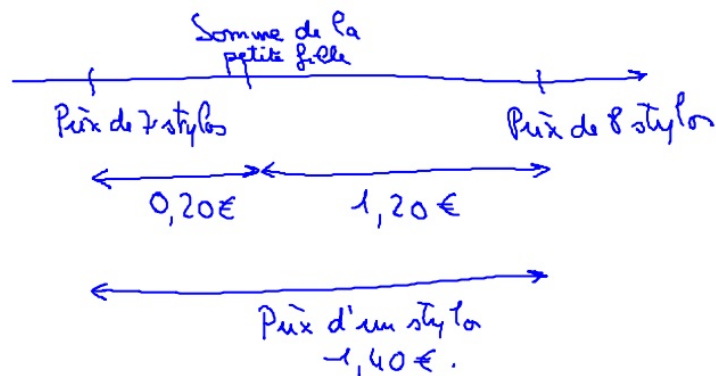 Somme de la
petite fille
Prix de 7 stylos
Prix de 8 stylos
0,20€
1,20€
Prix d'un stylo
1,40€.